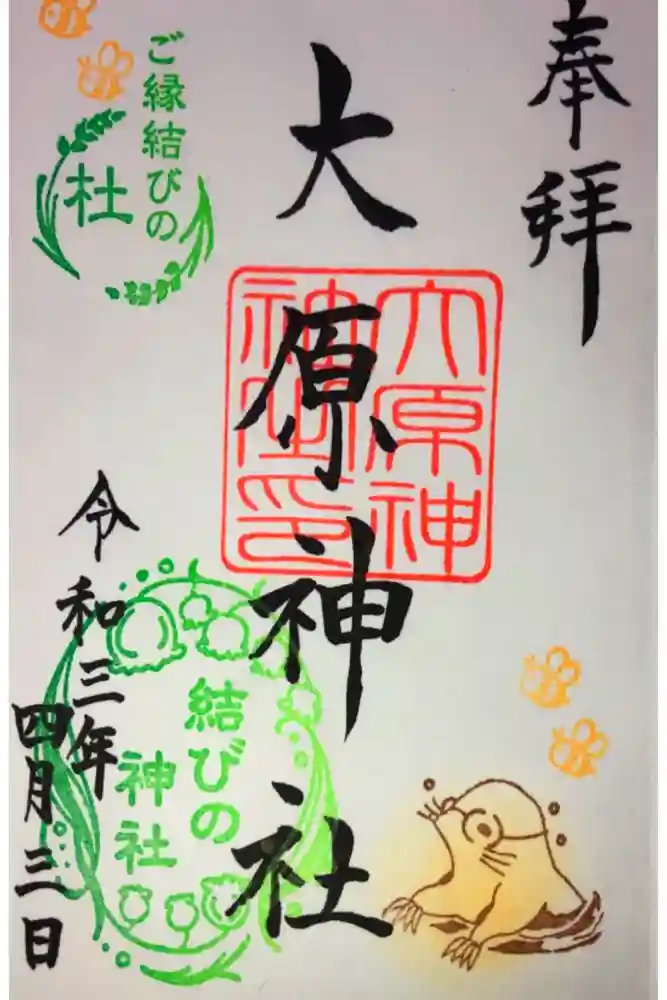 奉拝
大原神社
大原神
神社印
ご縁結びの
杜
結びの
神社
令和三年
四月三日